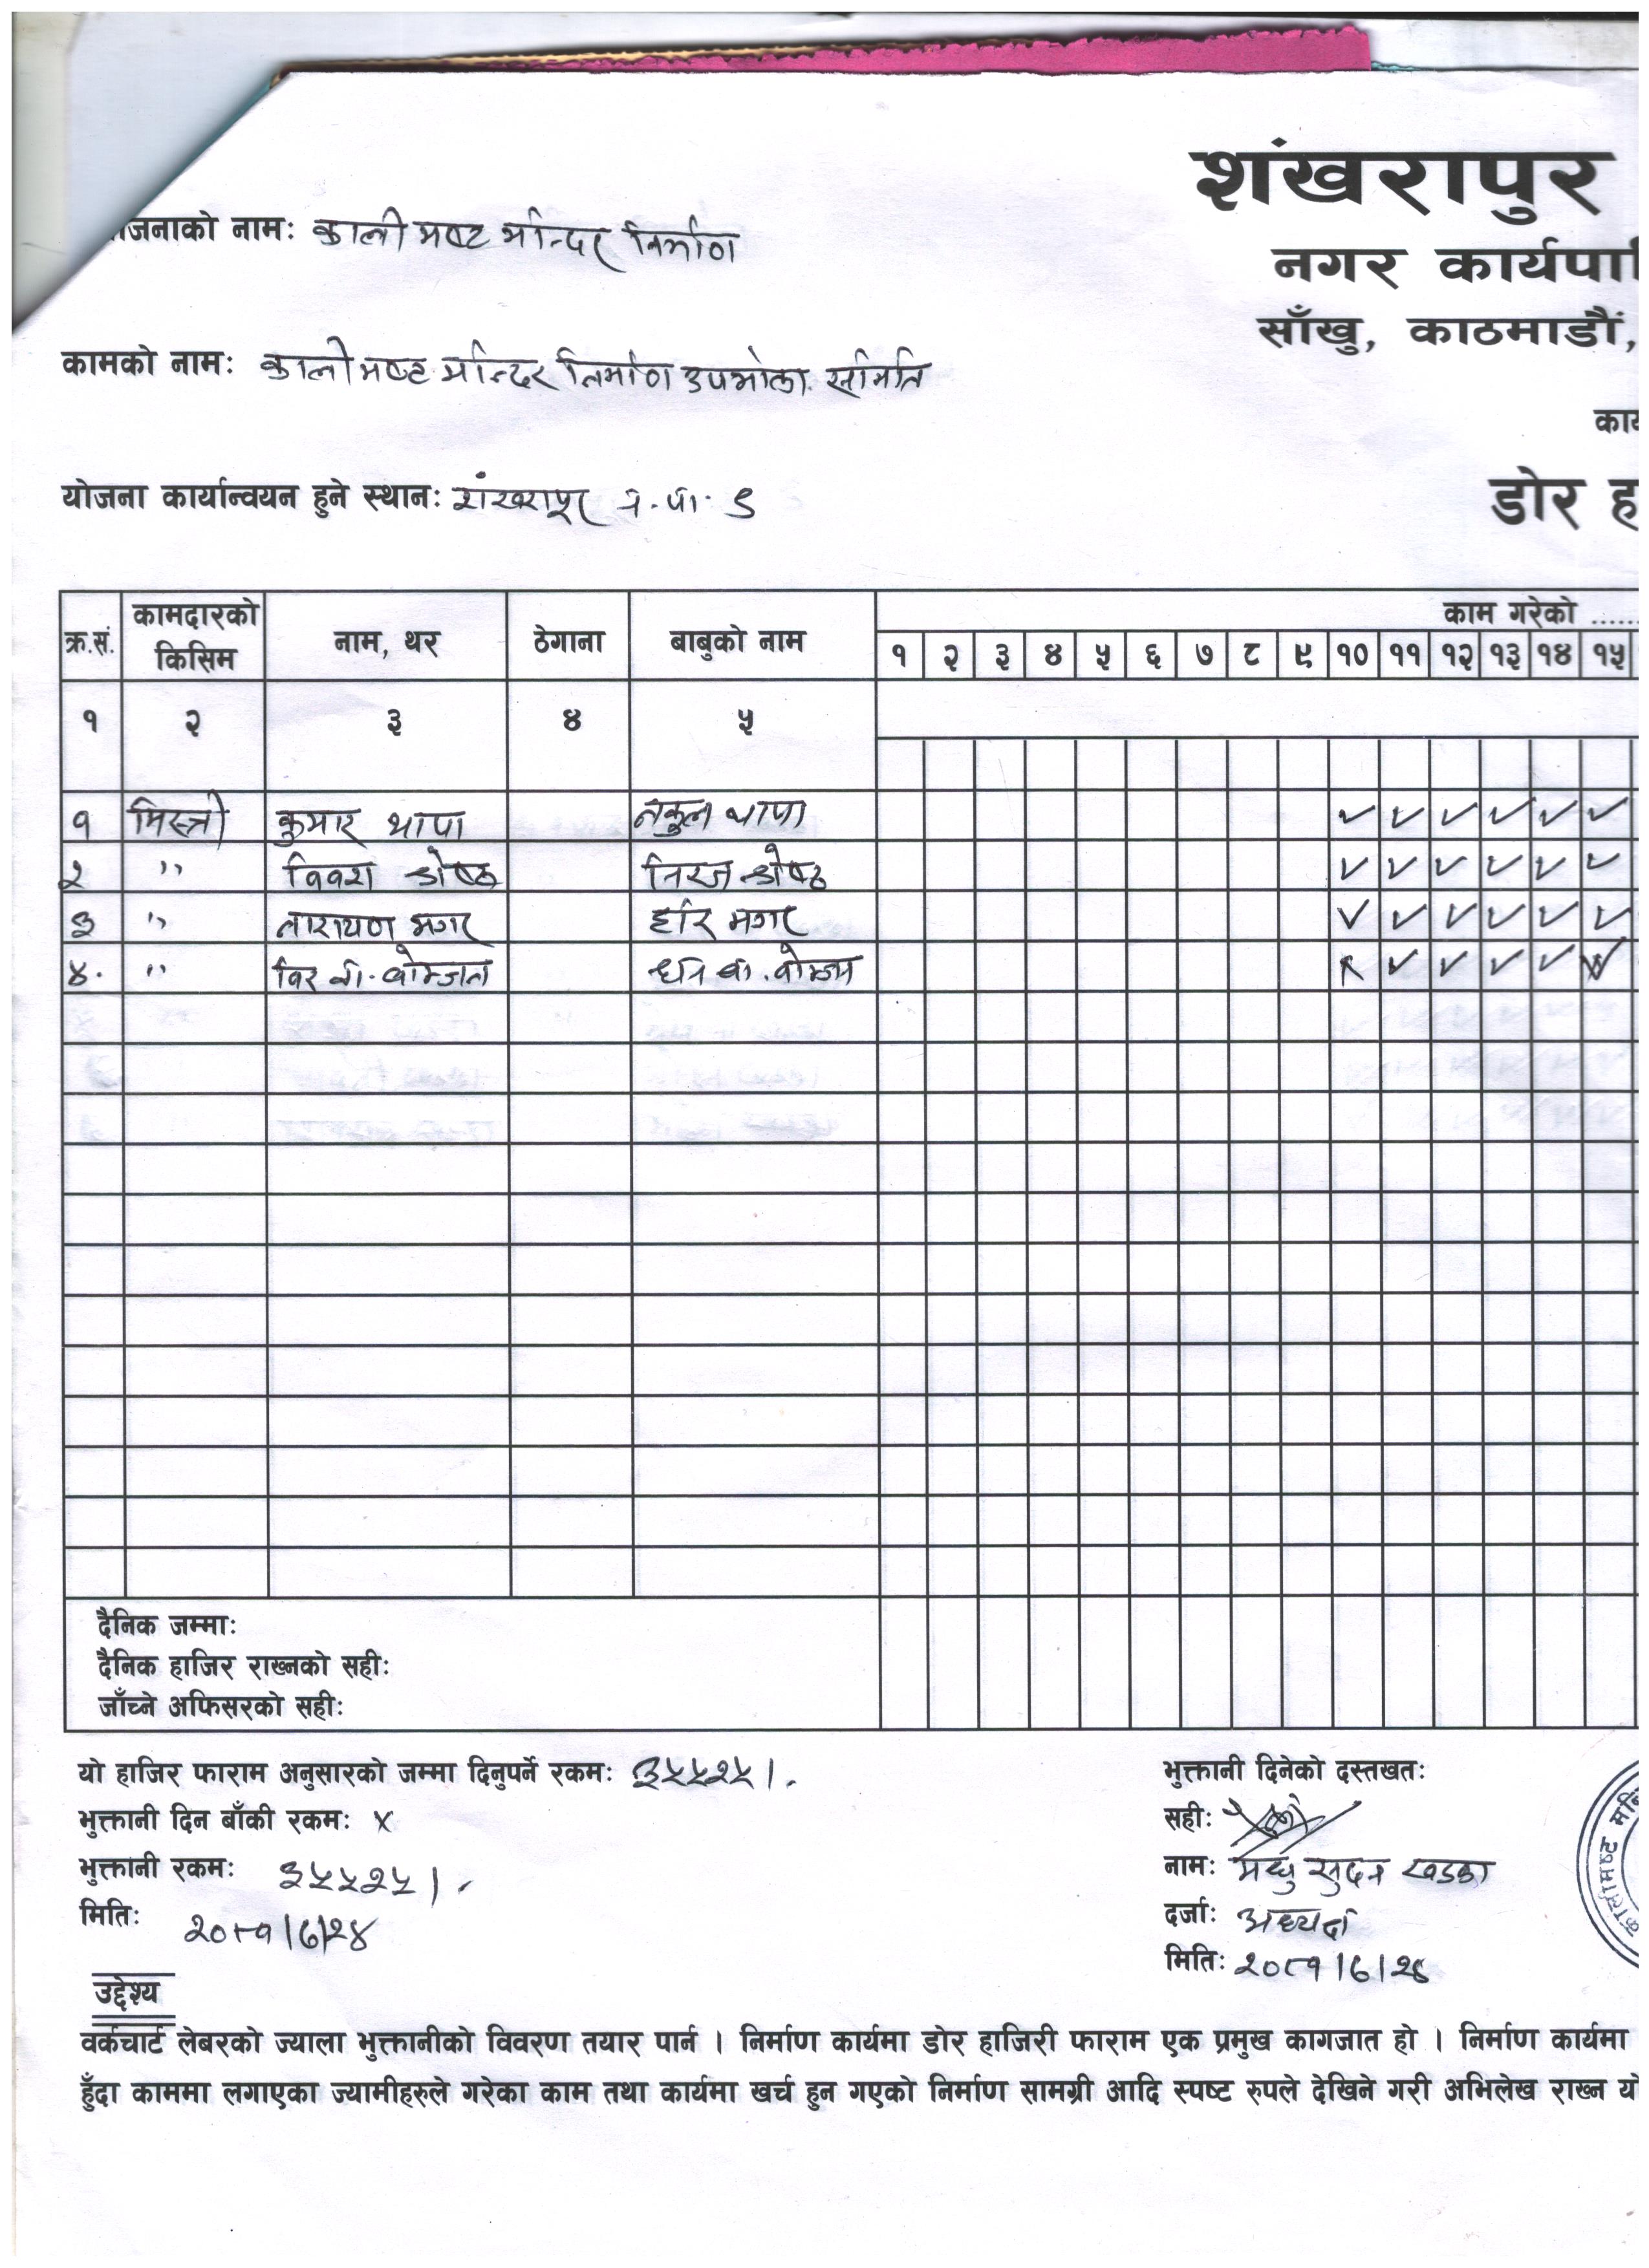 शंखरापुर
नगर कार्यपा
साँखु, काठमाडौं,
जनाको नामः काली मष्ट मन्दिर निर्माण
कामको नामः काली मष्ट मन्दिर निर्माण उपभोक्ता समिति
योजना कार्यान्वयन हुने स्थानः शंखरापूर न.पा. ९
डोर ह
क्र.सं. कामदारको किसिम नाम, थर ठेगाना बाबुको नाम काम गरेको ......
१ २ ३ ४ ५ ६ ७ ८ ९ १० ११ १२ १३ १४ १५
१ २ ३ ४ ५
१ मिस्त्री कुमार थापा नकुल थापा ✓ ✓ ✓ ✓ ✓ ✓
२ " विवश श्रेष्ठ निरज श्रेष्ठ ✓ ✓ ✓ ✓ ✓ ✓
३ " नारायण मगर हरि मगर ✓ ✓ ✓ ✓ ✓ ✓
४. " विर ब. वोम्जन ब. वोम्जन ✓ ✓ ✓ ✓
दैनिक जम्माः
दैनिक हाजिर राख्नको सहीः
जाँच्ने अफिसरको सहीः
यो हाजिर फाराम अनुसारको जम्मा दिनुपर्ने रकमः ३५५२५।-
भुक्तानी दिन बाँकी रकमः x
भुक्तानी रकमः ३५५२५।-
मितिः २०८१/७/२४
भुक्तानी दिनेको दस्तखतः
सहीः
नामः मधु सुदन खड्का
दर्जाः अध्यक्ष
मितिः २०८१।७।२४
कालीमष्ट मन्दि
उद्देश्य
वर्कचार्ट लेबरको ज्याला भुक्तानीको विवरण तयार पार्न । निर्माण कार्यमा डोर हाजिरी फाराम एक प्रमुख कागजात हो । निर्माण कार्यमा
हुँदा काममा लगाएका ज्यामीहरुले गरेका काम तथा कार्यमा खर्च हुन गएको निर्माण सामग्री आदि स्पष्ट रुपले देखिने गरी अभिलेख राख्न यो